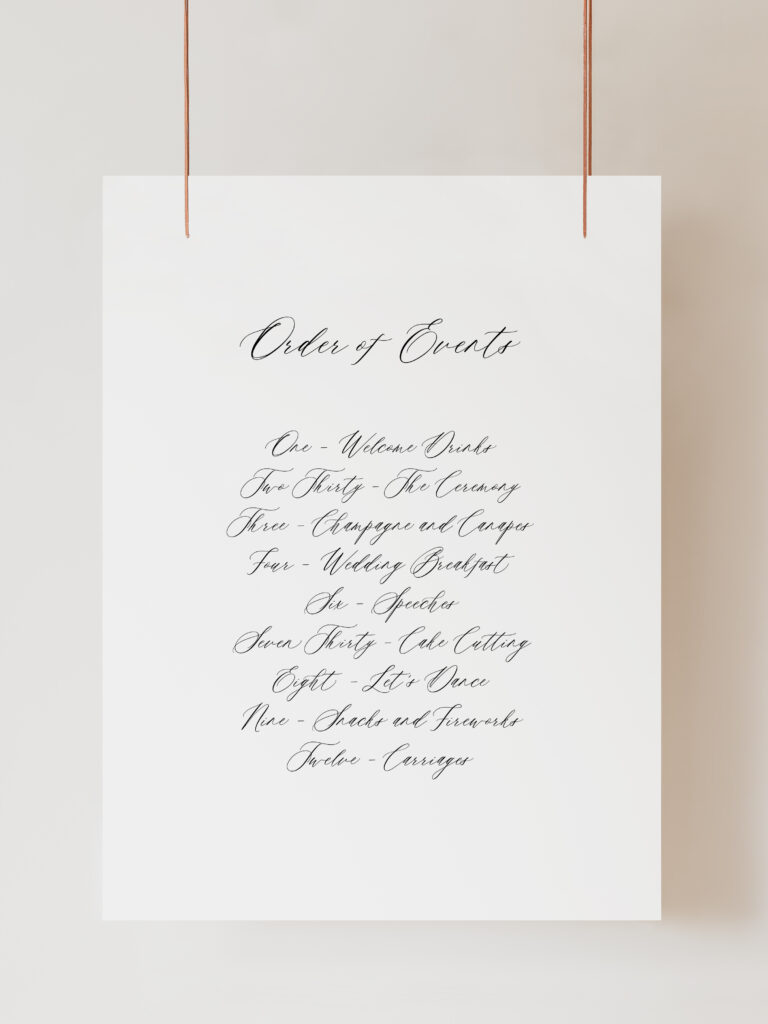 Order of Events
One - Welcome Drinks
Two Thirty - The Ceremony
Three - Champagne and Canapes
Four - Wedding Breakfast
Six - Speeches
Seven Thirty - Cake Cutting
Eight - Let's Dance
Nine - Snacks and Fireworks
Twelve - Carriages